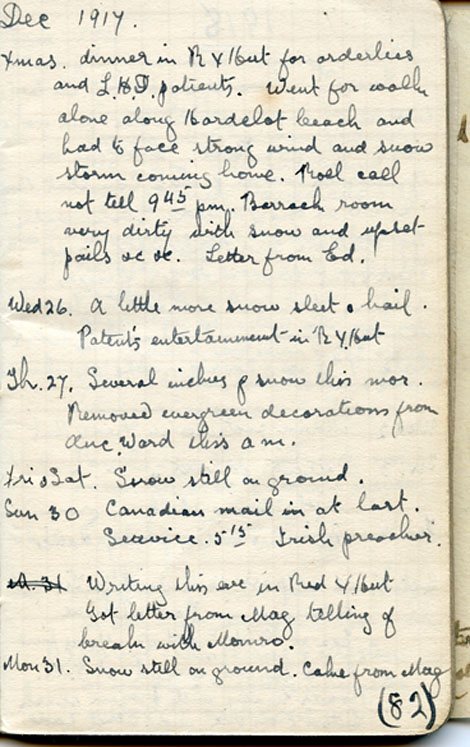 Dec 1917.
Xmas. dinner in R Y Hut for orderlies
and L.H.D. patients. Went for walk
alone along Hardelot beach and
had to face strong wind and snow
storm coming home. Roll call
not till 9 45 pm. Barrack room
very dirty with snow and upset
pails &c &c. Letter from Ed.
Wed 26. A little more snow sleet & hail.
Patent's entertainment in R Y Hut
Th. 27. Several inches of snow this mor.
Removed evergreen decorations from
Ward this a m.
Fri & Sat. Snow still on ground.
Sun 30 Canadian mail in at last.
Service. 5 15 Irish preacher.
31 Writing this eve in Red Y Hut
Got letter from Mag telling of
break with Monro.
Mon 31. Snow still on ground. Cake from Mag
(82)